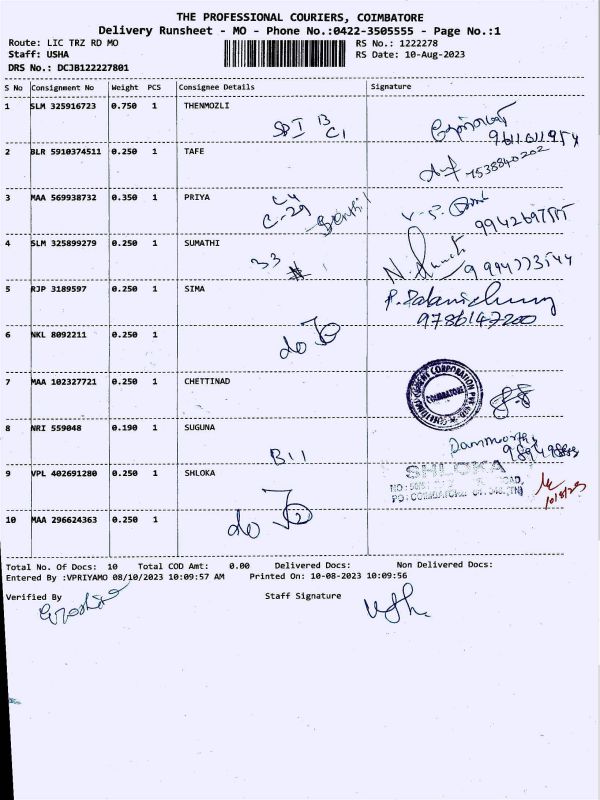 THE PROFESSIONAL COURIERS, COIMBATORE
Delivery Runsheet - MO - Phone No.:0422-3505555 - Page No.:1
Route: LIC TRZ RD MO RS No.: 1222278
Staff: USHA RS Date: 10-Aug-2023
DRS No.: DCJB122227801
S No Consignment No Weight PCS Consignee Details Signature
1 SLM 325916723 0.750 1 THENMOZLI
SBI B C1
2 BLR 5910374511 0.250 1 TAFE
7538840202
3 MAA 569938732 0.350 1 PRIYA
C4
C-29
4 SLM 325899279 0.250 1 SUMATHI
33
9994773544
5 RJP 3189597 0.250 1 SIMA
9786147200
6 NKL 8092211 0.250 1
do
7 MAA 102327721 0.250 1 CHETTINAD
COIMBATORE
8 NRI 559048 0.190 1 SUGUNA
B11
9 VPL 402691280 0.250 1 SHLOKA
SHLOKA
10/8/23
10 MAA 296624363 0.250 1
do
Total No. Of Docs: 10 Total COD Amt: 0.00 Delivered Docs: Non Delivered Docs:
Entered By :VPRIYAMO 08/10/2023 10:09:57 AM Printed On: 10-08-2023 10:09:56
Verified By Staff Signature